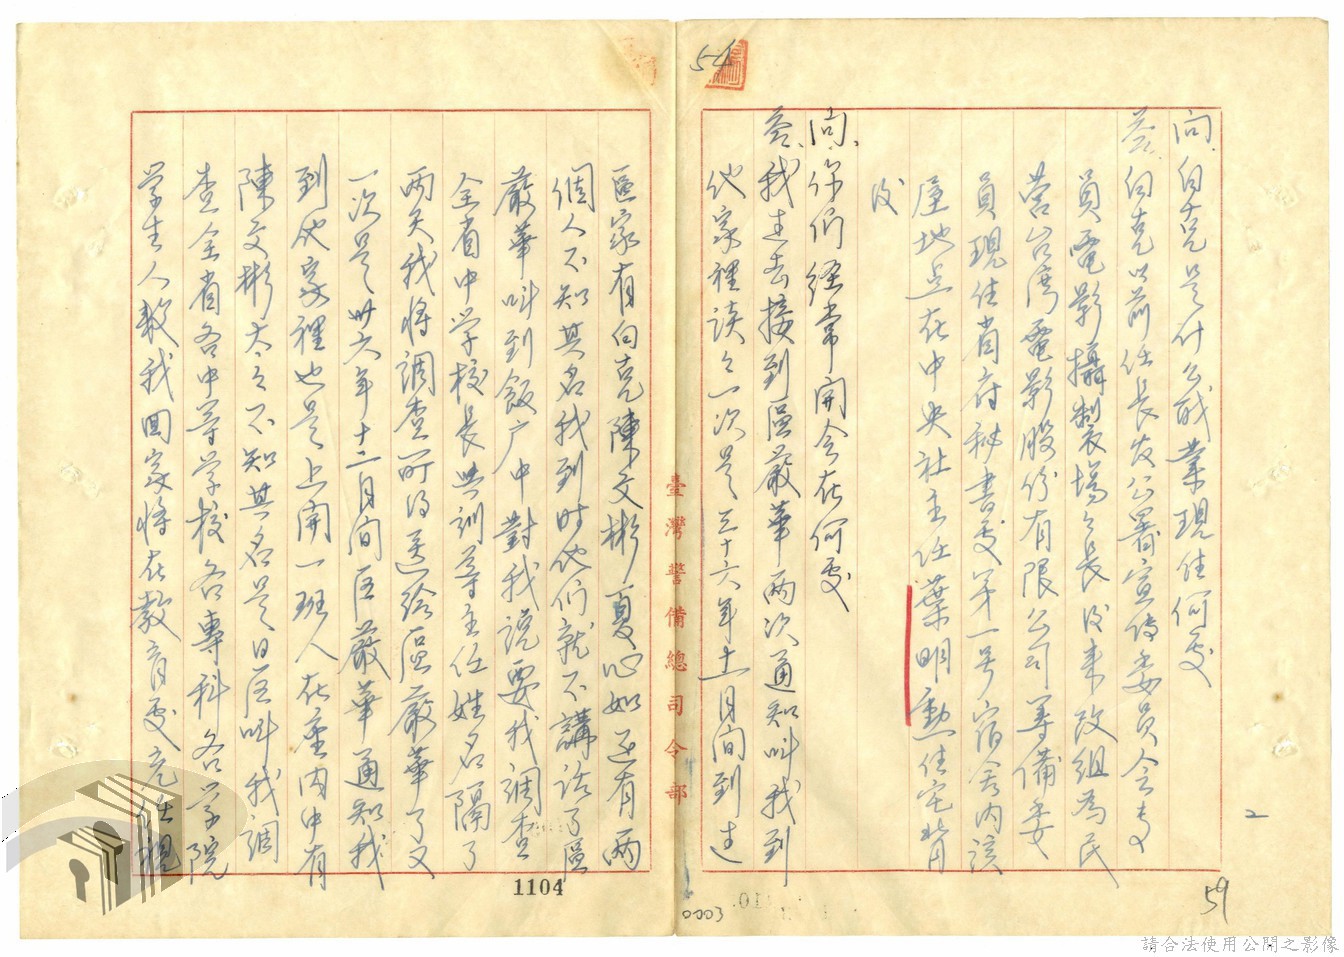 54
問、白克是什么職業現住何處
答、白克以前任長官公署宣傳委員会专
員電影攝製場場長後来改組為民
营台湾電影股份有限公司筹備委
員現住省府秘書處第一号宿舍内該
屋地点在中央社主任葉明勳住宅背
後
問、你们经常開会在何處
答、我过去接到區嚴華两次通知叫我到
他家裡談々一次是三十六年十一月間到过
區家有白克陳文彬夏心如还有两
個人不知其名我到时他们就不講話了區
嚴華叫到飯厅中對我說要我調查
全省中学校長與訓导主任姓名隔了
两天我将調查所得送给區嚴華了又
一次是卅六年十二月间區嚴華通知我
到他家裡也是上開一班人在座内中有
陳文彬太々不知其名是日區叫我調
查全省各中等学校各專科各学院
学生人数我回家将在教育處充任視
臺灣警備總司令部
2
59
1104
0003
請合法使用公開之影像